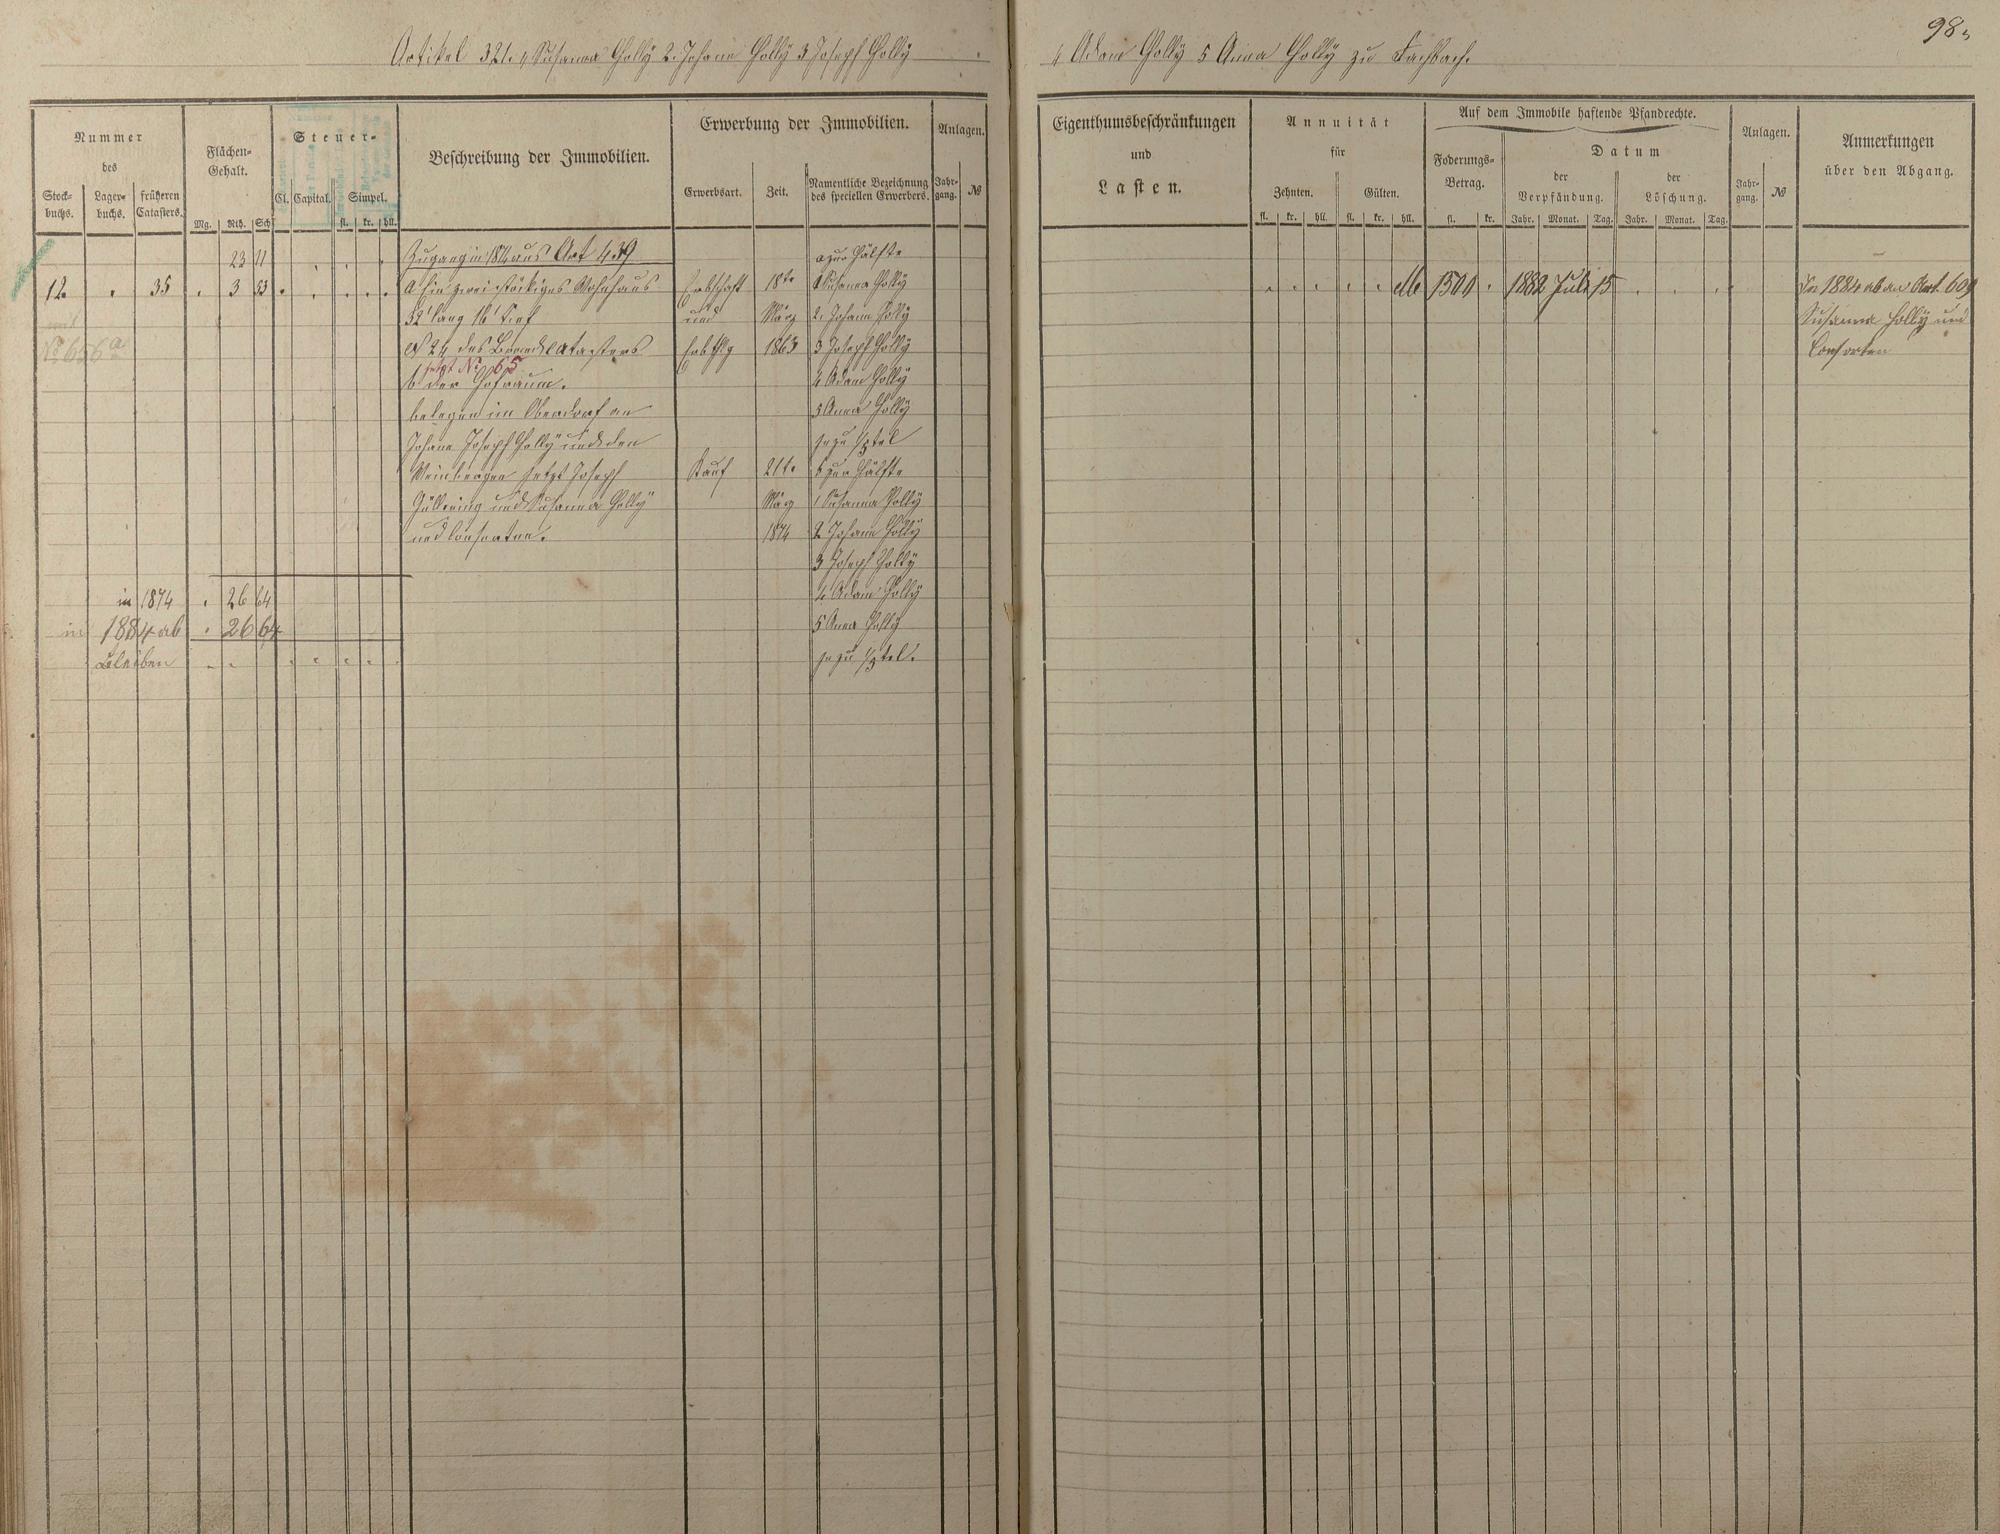 98.
Artikel 321. 1 Susanna Holly 2. Johann Holly 3 Joseph Holly
4 Adam Holly 5 Anna Holly zu Fachbach.
Nummer
des
Stock-
buchs.
Lager-
buchs.
früheren
Catasters.
Flächen-
Gehalt.
Mg. Rth. Sch
Steuer-
Cl. Capital. Simpel.
fl. kr. hll.
Beschreibung der Immobilien.
Erwerbung der Immobilien.
Erwerbsart. Zeit.
Namentliche Bezeichnung
des speciellen Erwerbers.
Anlagen.
Jahr-
gang. №
Eigenthumsbeschränkungen
und
Lasten.
Annuität
für
Zehnten. Gülten.
fl. kr. hll. fl. kr. hll.
Auf dem Immobile haftende Pfandrechte.
Foderungs-
Betrag.
fl. kr.
Datum
der
Verpfändung.
Jahr. Monat. Tag.
der
Löschung.
Jahr. Monat. Tag.
Anlagen.
Jahr-
gang. №
Anmerkungen
über den Abgang.
23 11 Zugang in 1874 aus Art 439 a zur Hälfte
12. 35 3 53 a Ein zweistöckiges Wohnhaus Erbschaft 18te 1 Susanna Holly
32' lang 16' tief und März 2. Johann Holly
№ 656a
24 des Brandcatasters 1863 3 Joseph Holly
jetzt № 65
b der Hofraum. 4 Adam Holly
belegen im Oberdorf an 5 Anna Holly
Johann Joseph Holly und den je zu 1/5tel
Weinbergen jetzt Joseph Kauf 21te b zur Hälfte
und Susanna Holly März 1 Susanna Holly
und Consorten. 1874 2 Johann Holly
3 Joseph Holly
in 1874 26 64 4 Adam Holly
in 1884 ab 26 64 5 Anna Holly
bleiben je zu 1/5tel.
1500 1882 Juli 15
In 1884 ab an Art. 609
Susanna Holly und
Consorten